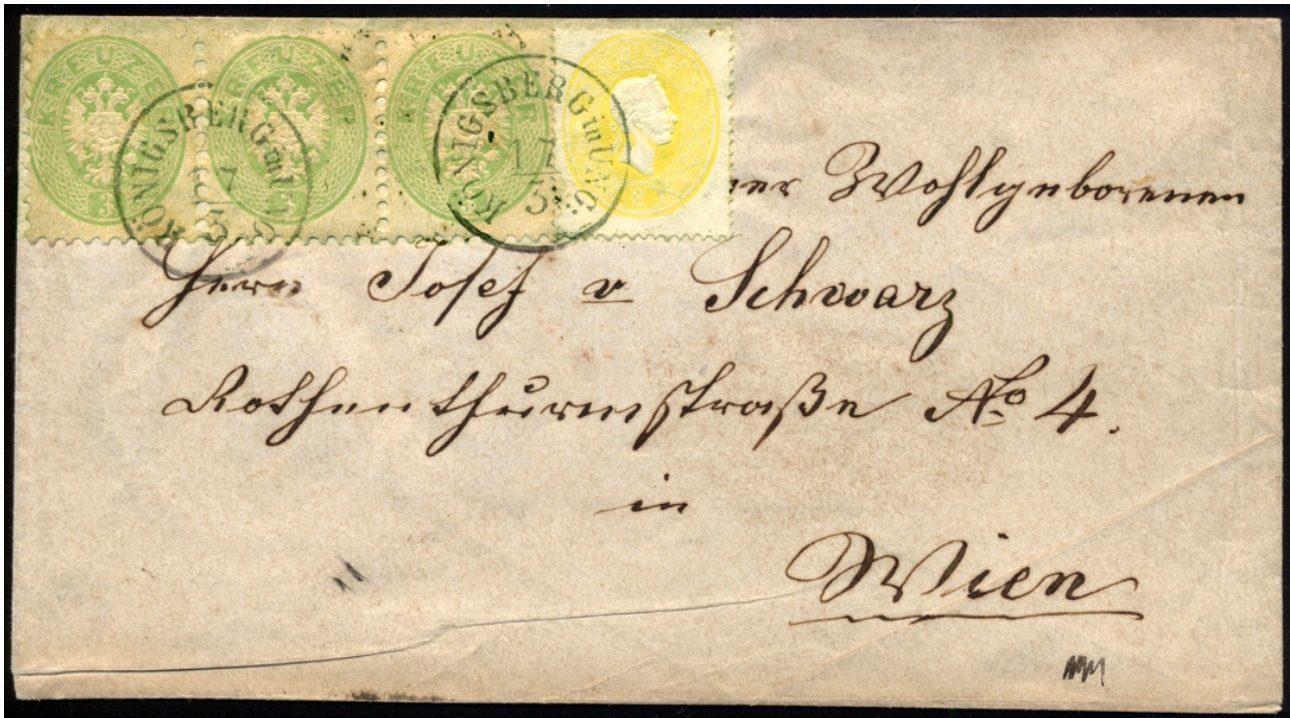 KREUZER KREUZER KREUZER KREUZER
3 3 3 2
KÖNIGSBERG in UNG: 17/3
KÖNIGSBERG in UNG: 17/3
ner Wohlgeborenen
Herrn Josef v Schwarz
Rothenthurmstraße No 4.
in
Wien